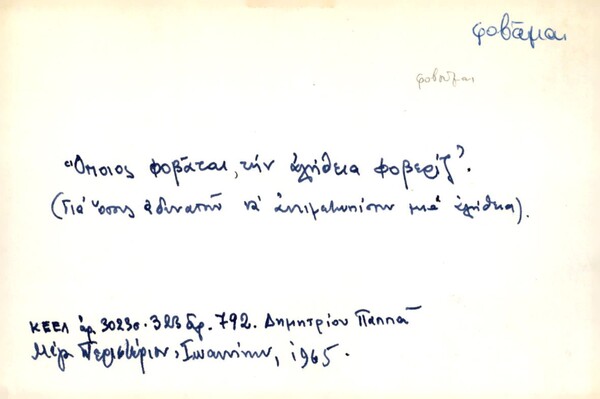 φοβᾶμαι
φοβοῦμαι
"Ὅποιος φοβᾶται, τὴν ἀλήθεια φοβερίζ'".
(Γιὰ ὅσους ἀδυνατοῦν νὰ ἀντιμετωπίσουν μιὰ ἀλήθεια).
ΚΕΕΛ ἀρ. 3023 σ. 323 ἀρ. 792. Δημητρίου Παππᾶ
Μέγα Περιστέριον, Ἰωαννίνων, 1965.